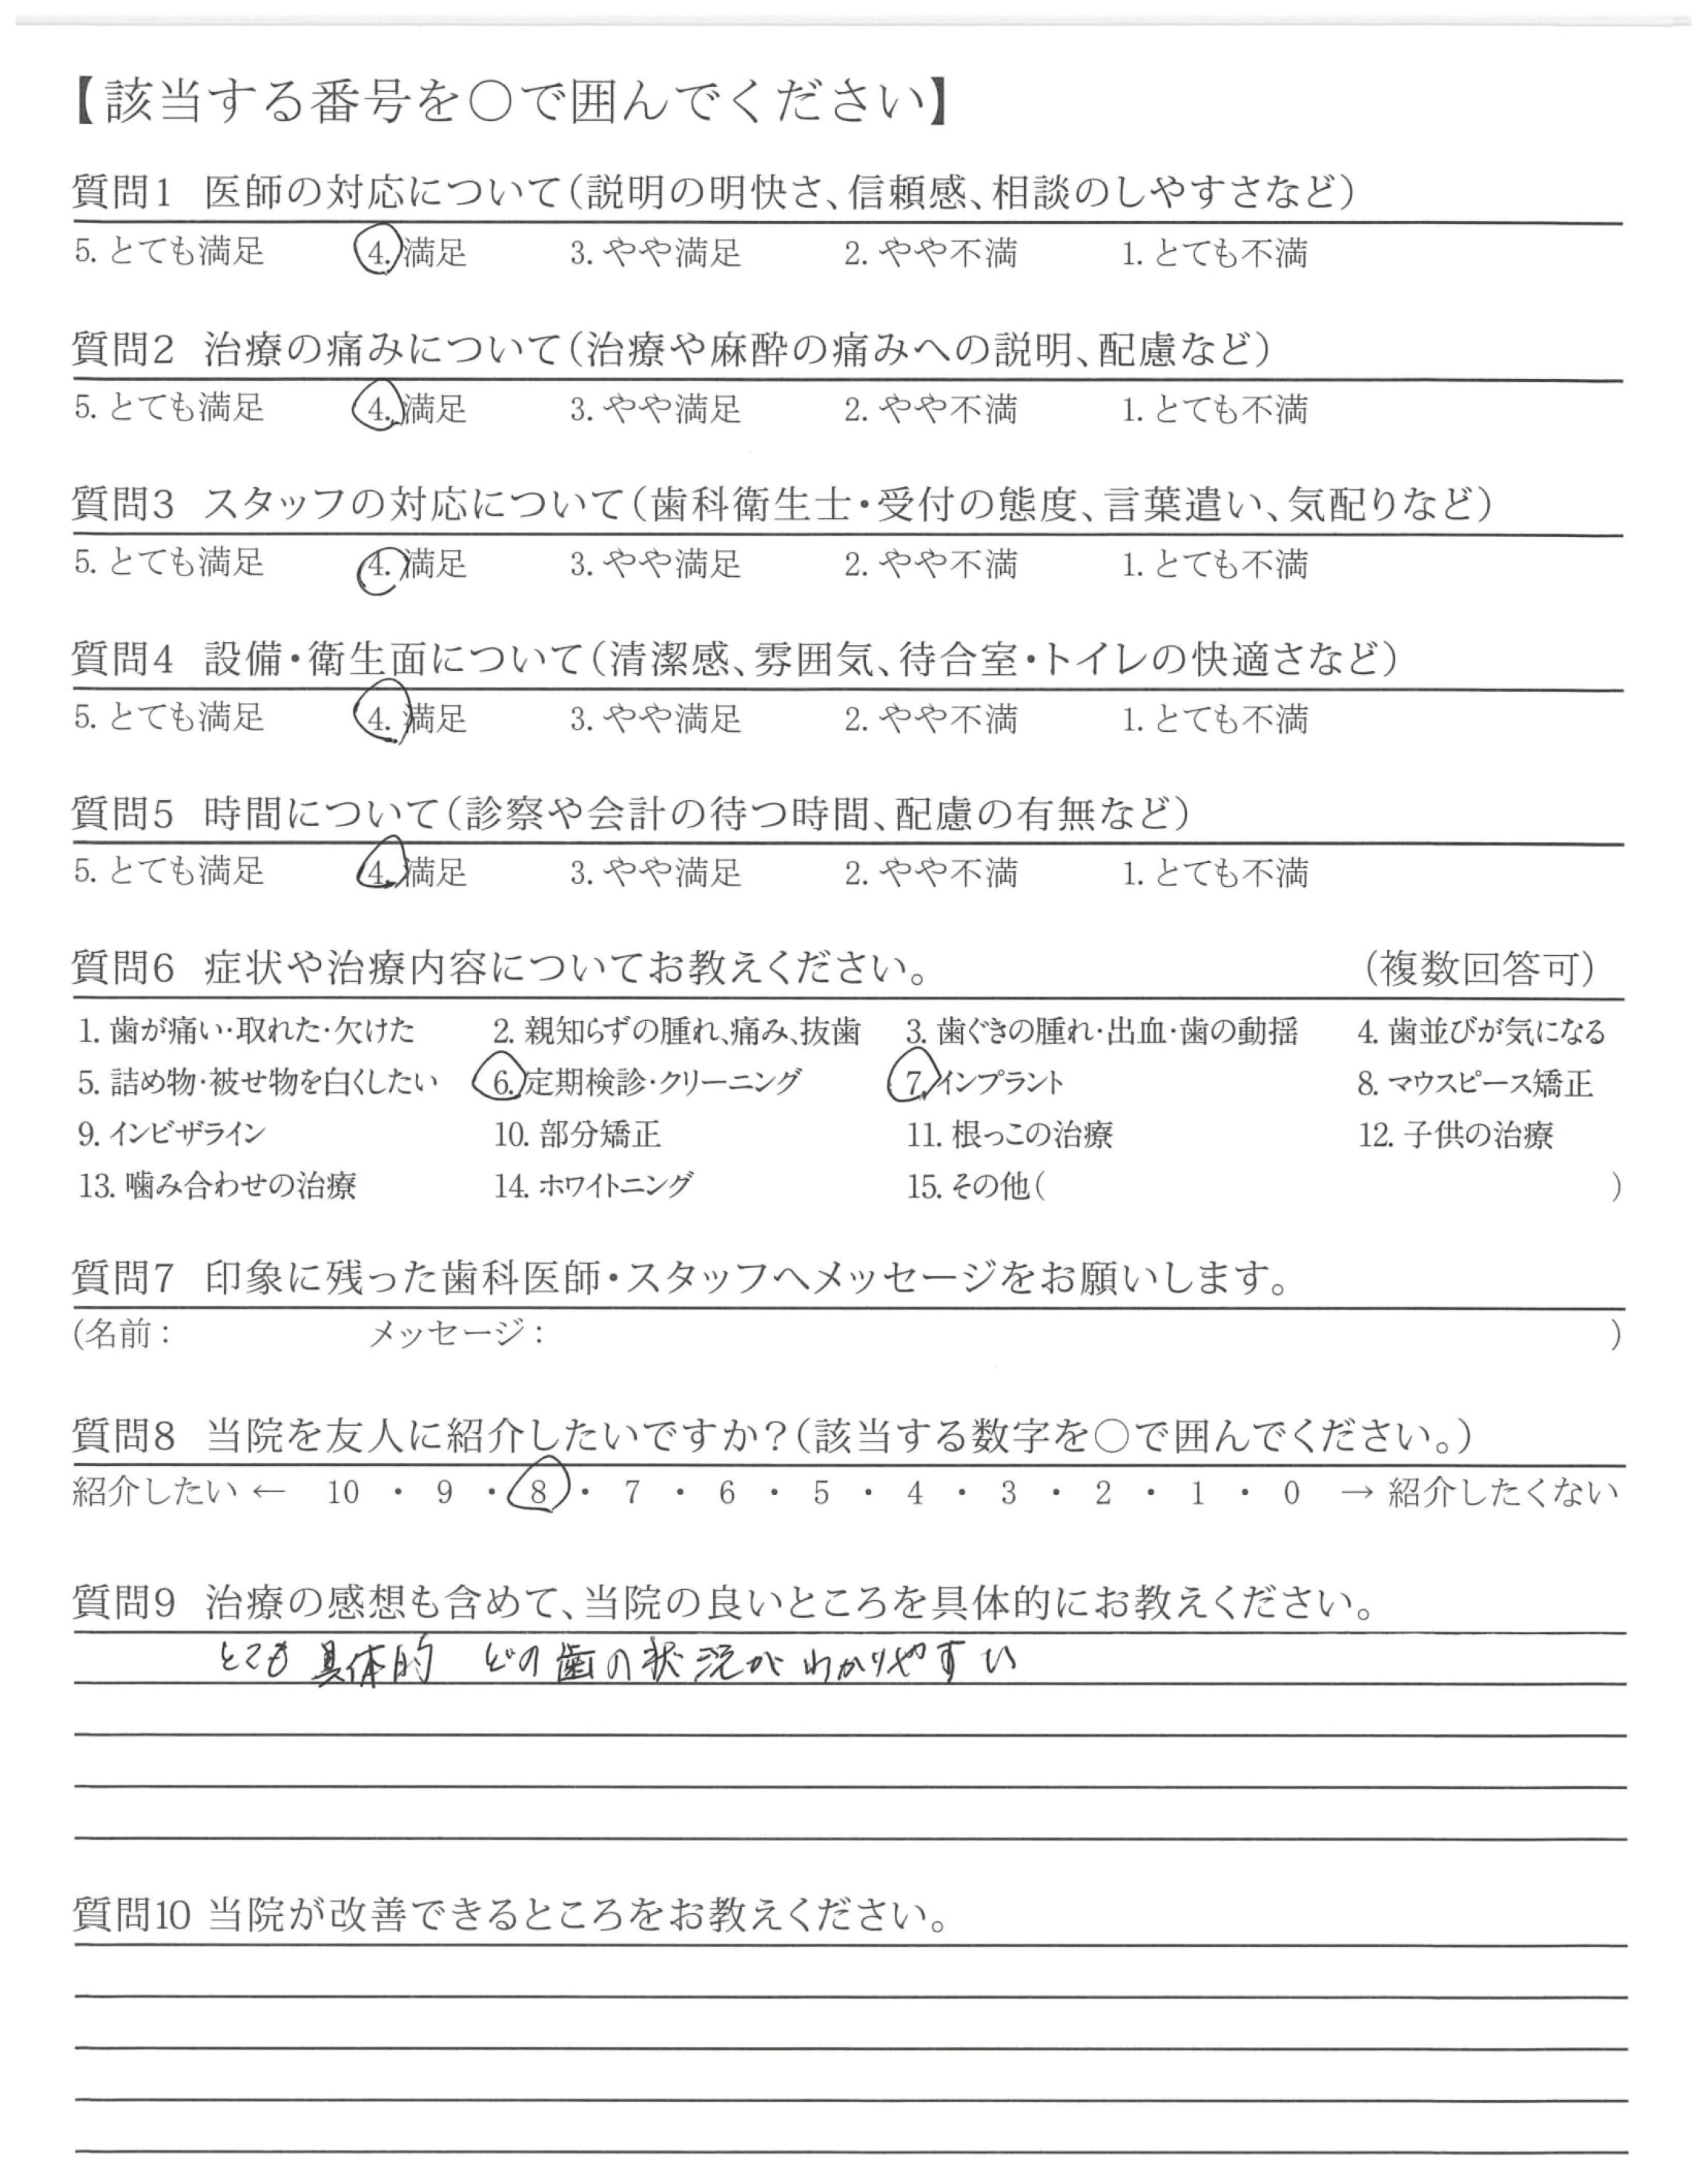 【該当する番号を○で囲んでください】
質問1 医師の対応について(説明の明快さ、信頼感、相談のしやすさなど)
5. とても満足 4. 満足 3. やや満足 2. やや不満 1. とても不満
質問2 治療の痛みについて(治療や麻酔の痛みへの説明、配慮など)
5. とても満足 4. 満足 3. やや満足 2. やや不満 1. とても不満
質問3 スタッフの対応について(歯科衛生士・受付の態度、言葉遣い、気配りなど)
5. とても満足 4. 満足 3. やや満足 2. やや不満 1. とても不満
質問4 設備・衛生面について(清潔感、雰囲気、待合室・トイレの快適さなど)
5. とても満足 4. 満足 3. やや満足 2. やや不満 1. とても不満
質問5 時間について(診察や会計の待つ時間、配慮の有無など)
5. とても満足 4. 満足 3. やや満足 2. やや不満 1. とても不満
質問6 症状や治療内容についてお教えください。 (複数回答可)
1. 歯が痛い・取れた・欠けた 2. 親知らずの腫れ、痛み、抜歯 3. 歯ぐきの腫れ・出血・歯の動揺 4. 歯並びが気になる
5. 詰め物・被せ物を白くしたい 6. 定期検診・クリーニング 7. インプラント 8. マウスピース矯正
9. インビザライン 10. 部分矯正 11. 根っこの治療 12. 子供の治療
13. 噛み合わせの治療 14. ホワイトニング 15. その他( )
質問7 印象に残った歯科医師・スタッフへメッセージをお願いします。
(名前: メッセージ: )
質問8 当院を友人に紹介したいですか?(該当する数字を○で囲んでください。)
紹介したい ← 10 ・ 9 ・ 8 ・ 7 ・ 6 ・ 5 ・ 4 ・ 3 ・ 2 ・ 1 ・ 0 → 紹介したくない
質問9 治療の感想も含めて、当院の良いところを具体的にお教えください。
とても具体的 どの歯の状況がわかりやすい
質問10 当院が改善できるところをお教えください。